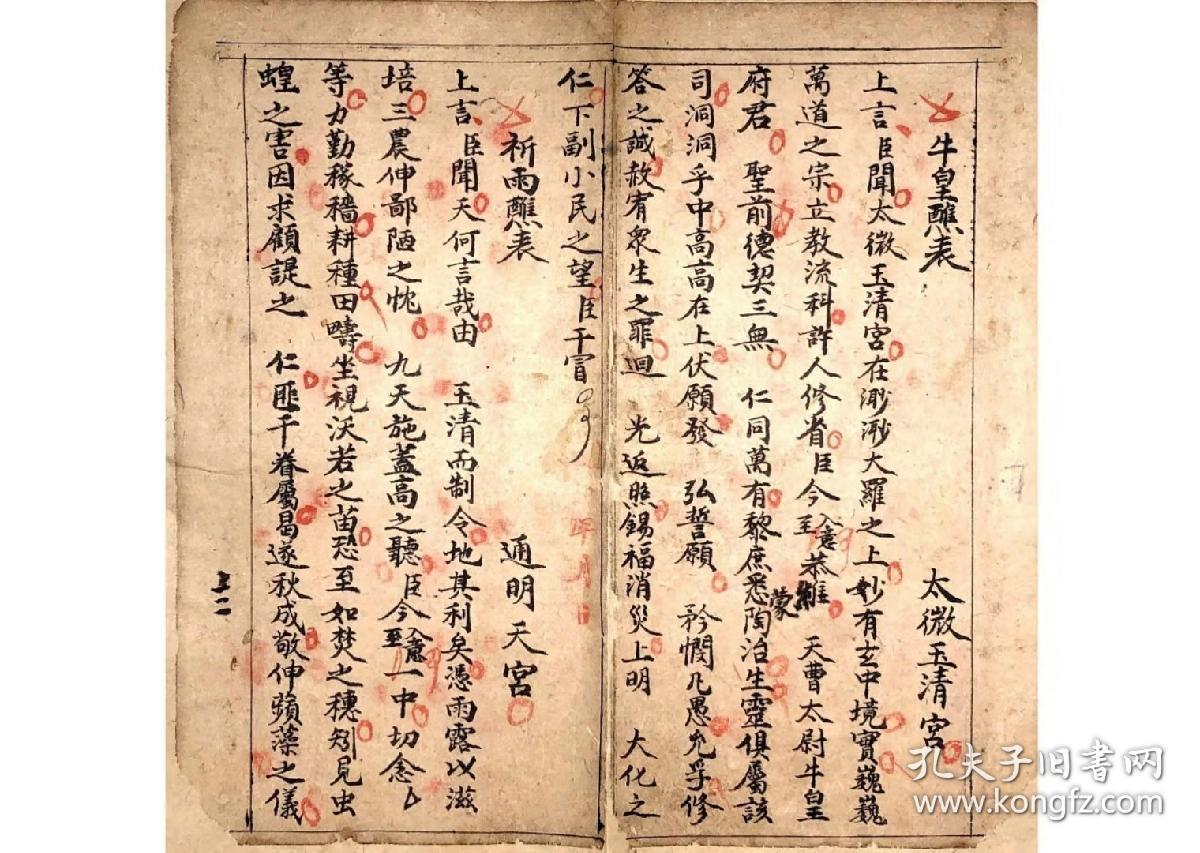 牛皇醮表 太微玉清宮
上言臣聞太微玉清宮在渺渺大羅之上妙有玄中境實巍巍
萬道之宗立教流科許人修省臣今入意至恭維 天曹太尉牛皇
府君 聖前德契三無 仁同萬有黎庶悉蒙陶冶生靈俱屬該
司洞洞乎中高高在上伏願發 弘誓願 矜憫凡愚允孚修
答之誠赦宥眾生之罪迴 光返照錫福消災上明 大化之
仁下副小民之望臣干冒
年月
祈雨醮表 通明天宮
上言臣聞天何言哉由 玉清而制令地其利矣憑雨露以滋
培三農伸鄙陋之忱 九天施蓋高之聽臣今入意至一中切念厶
等力勤稼穡耕種田疇坐視沃若之苗恐至如焚之穗矧見虫
蝗之害因求顧諟之 仁匪干眷屬曷遂秋成敬伸蘋藻之儀
孔夫子旧书网
www.kongfz.com